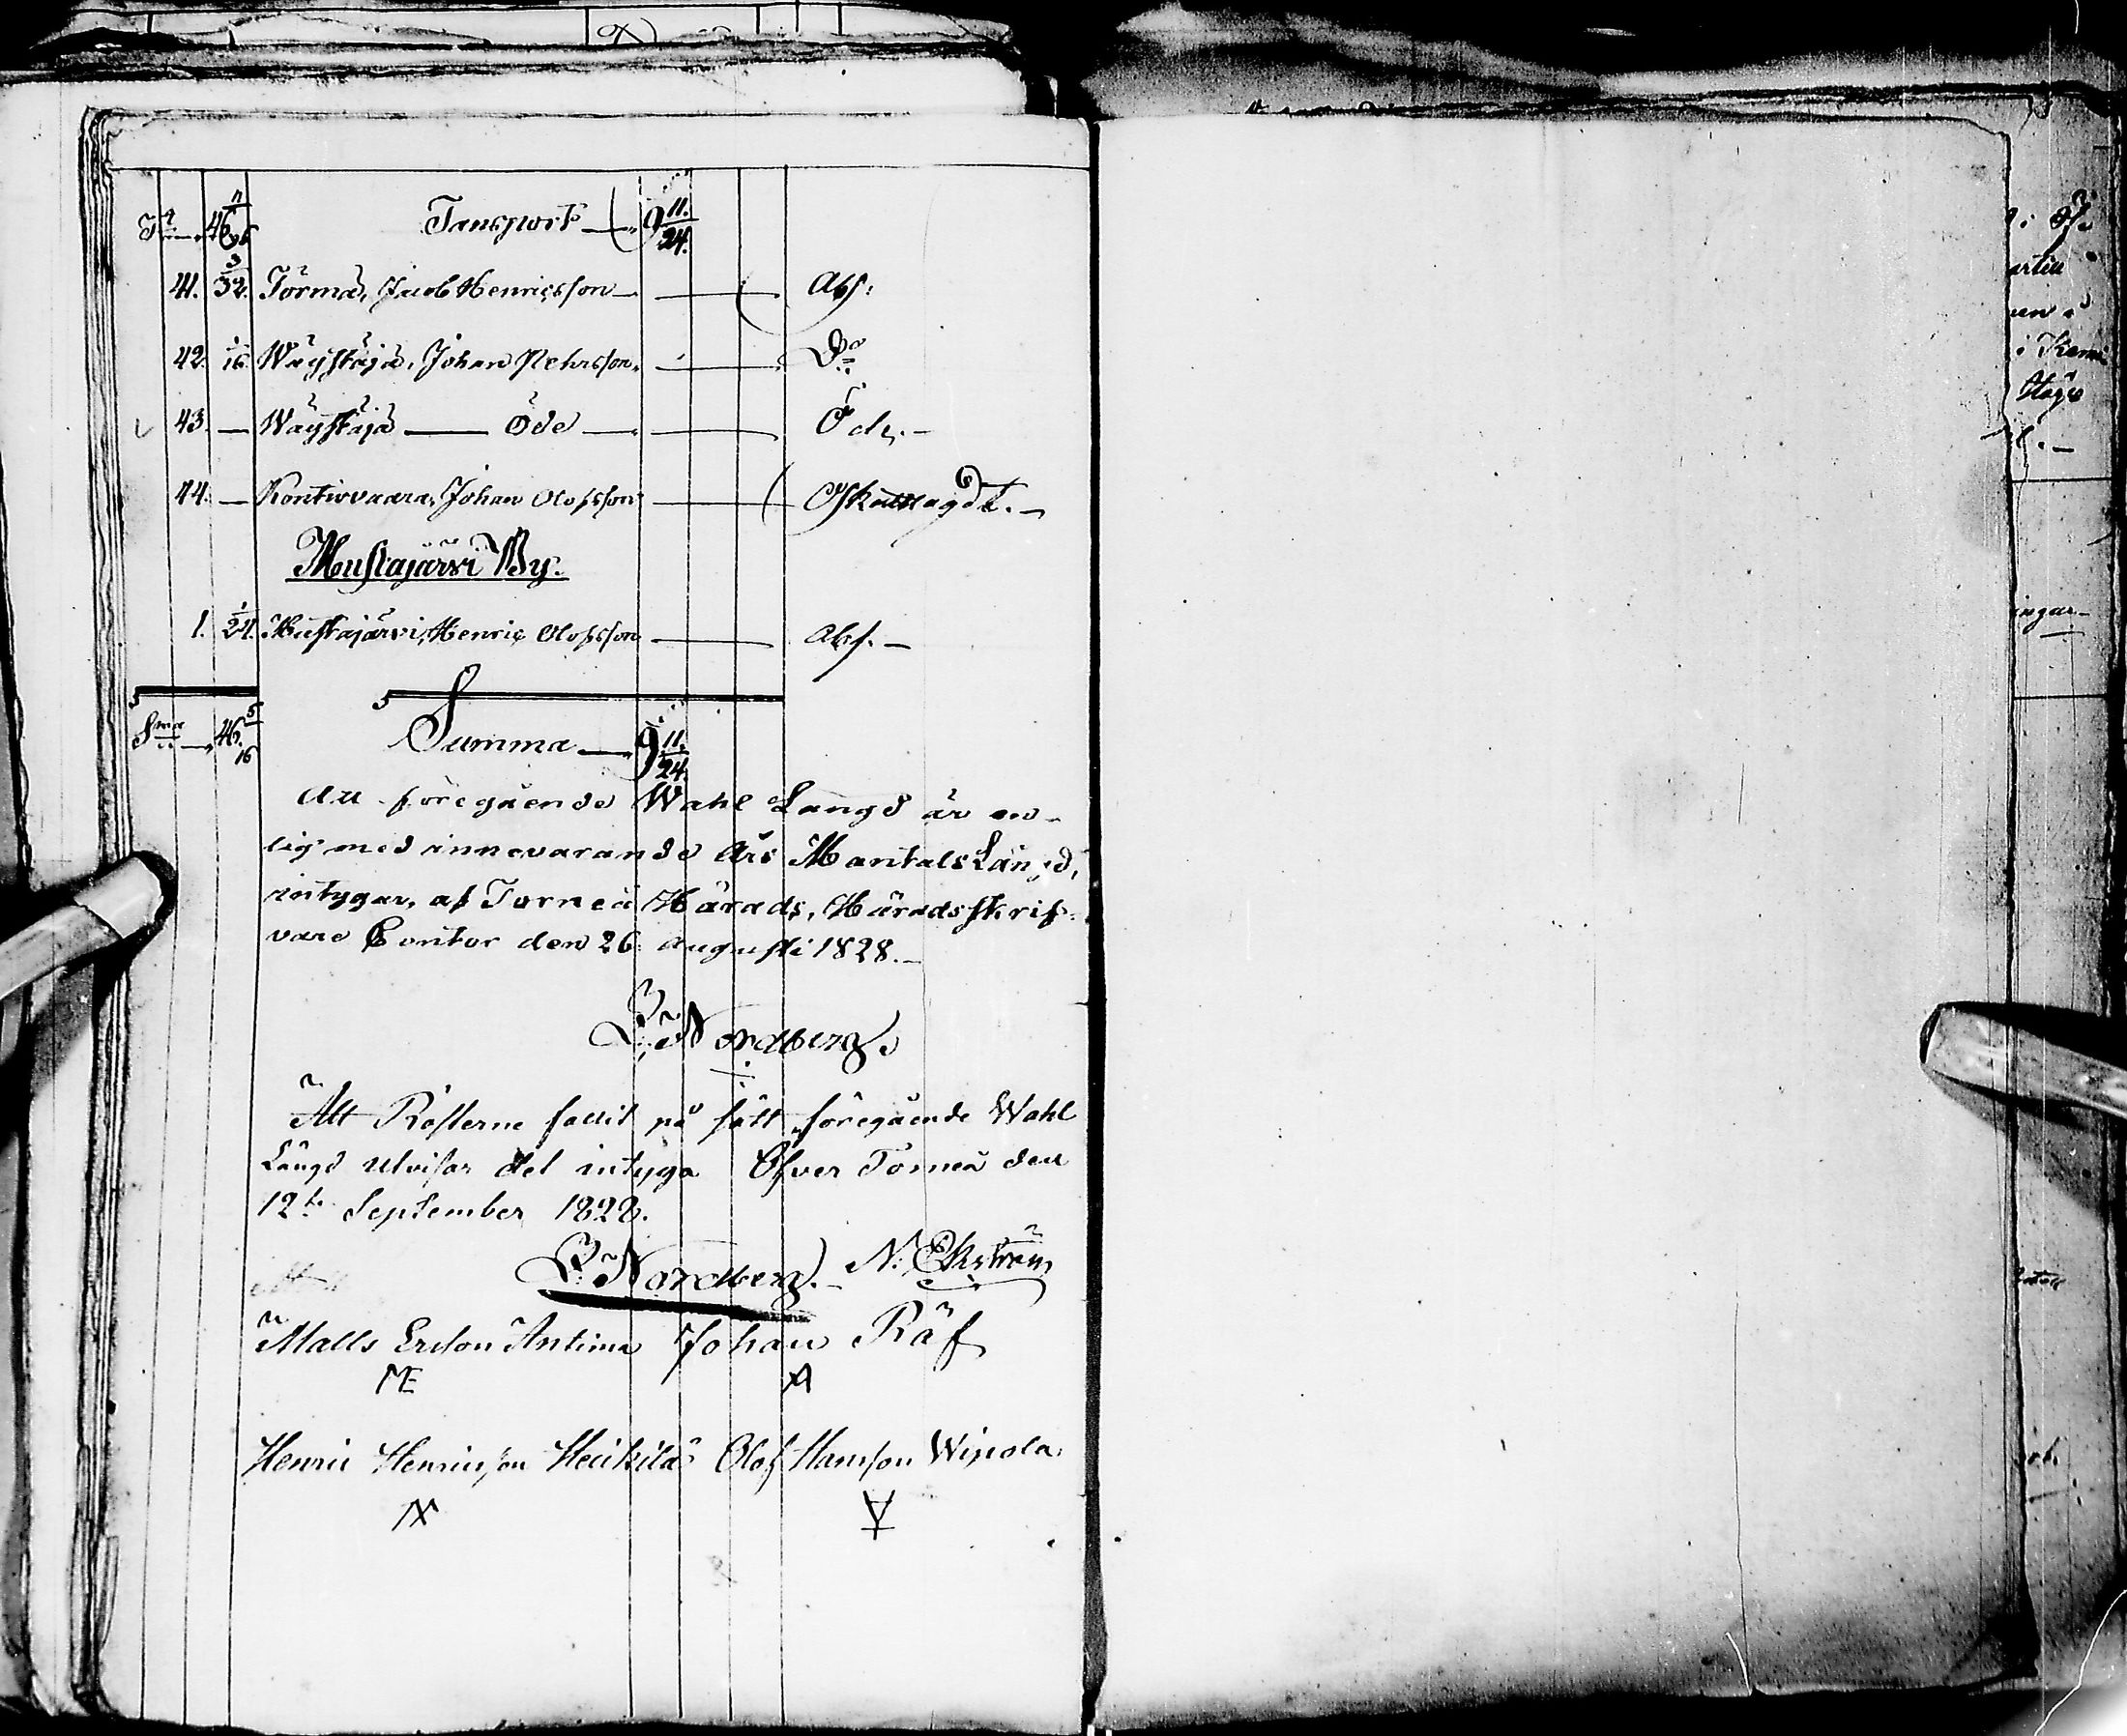 Tr 46 11/96 Tansport 9 11/24.
41. 3/32. Törmä, Jacob Henricsson Abs:
42. 1/16. Wäystäjä, Johan Pehrsson. Do
43. — Wäystäjä — Öde — Öde. —
44. — Kontiovaara, Johan Olofsson Oskattlagdt. —
Mustajärvi By.
1. 1/24. Mustajärvi, Henric Olofsson Abs. —
Sma 46. 5/16 Summa 9 11/24.
Att föregående Wahl Längd är en-
lig med innevarande Års Mantals Längd,
intygar, af Torneå Härads, Häradsskrif-
vare Contor den 26 Augusti 1828. —
Nordberg.
Att Rösterne fallit på sätt föregående Wahl
Längd utvisar det intyga Öfver Torneå den
12te September 1828.
Nordberg. — N: Ekström
Matts Ersson Antima Johan Räf
ME
Henric Henricsson Heikilä Olof Hansson Wipola